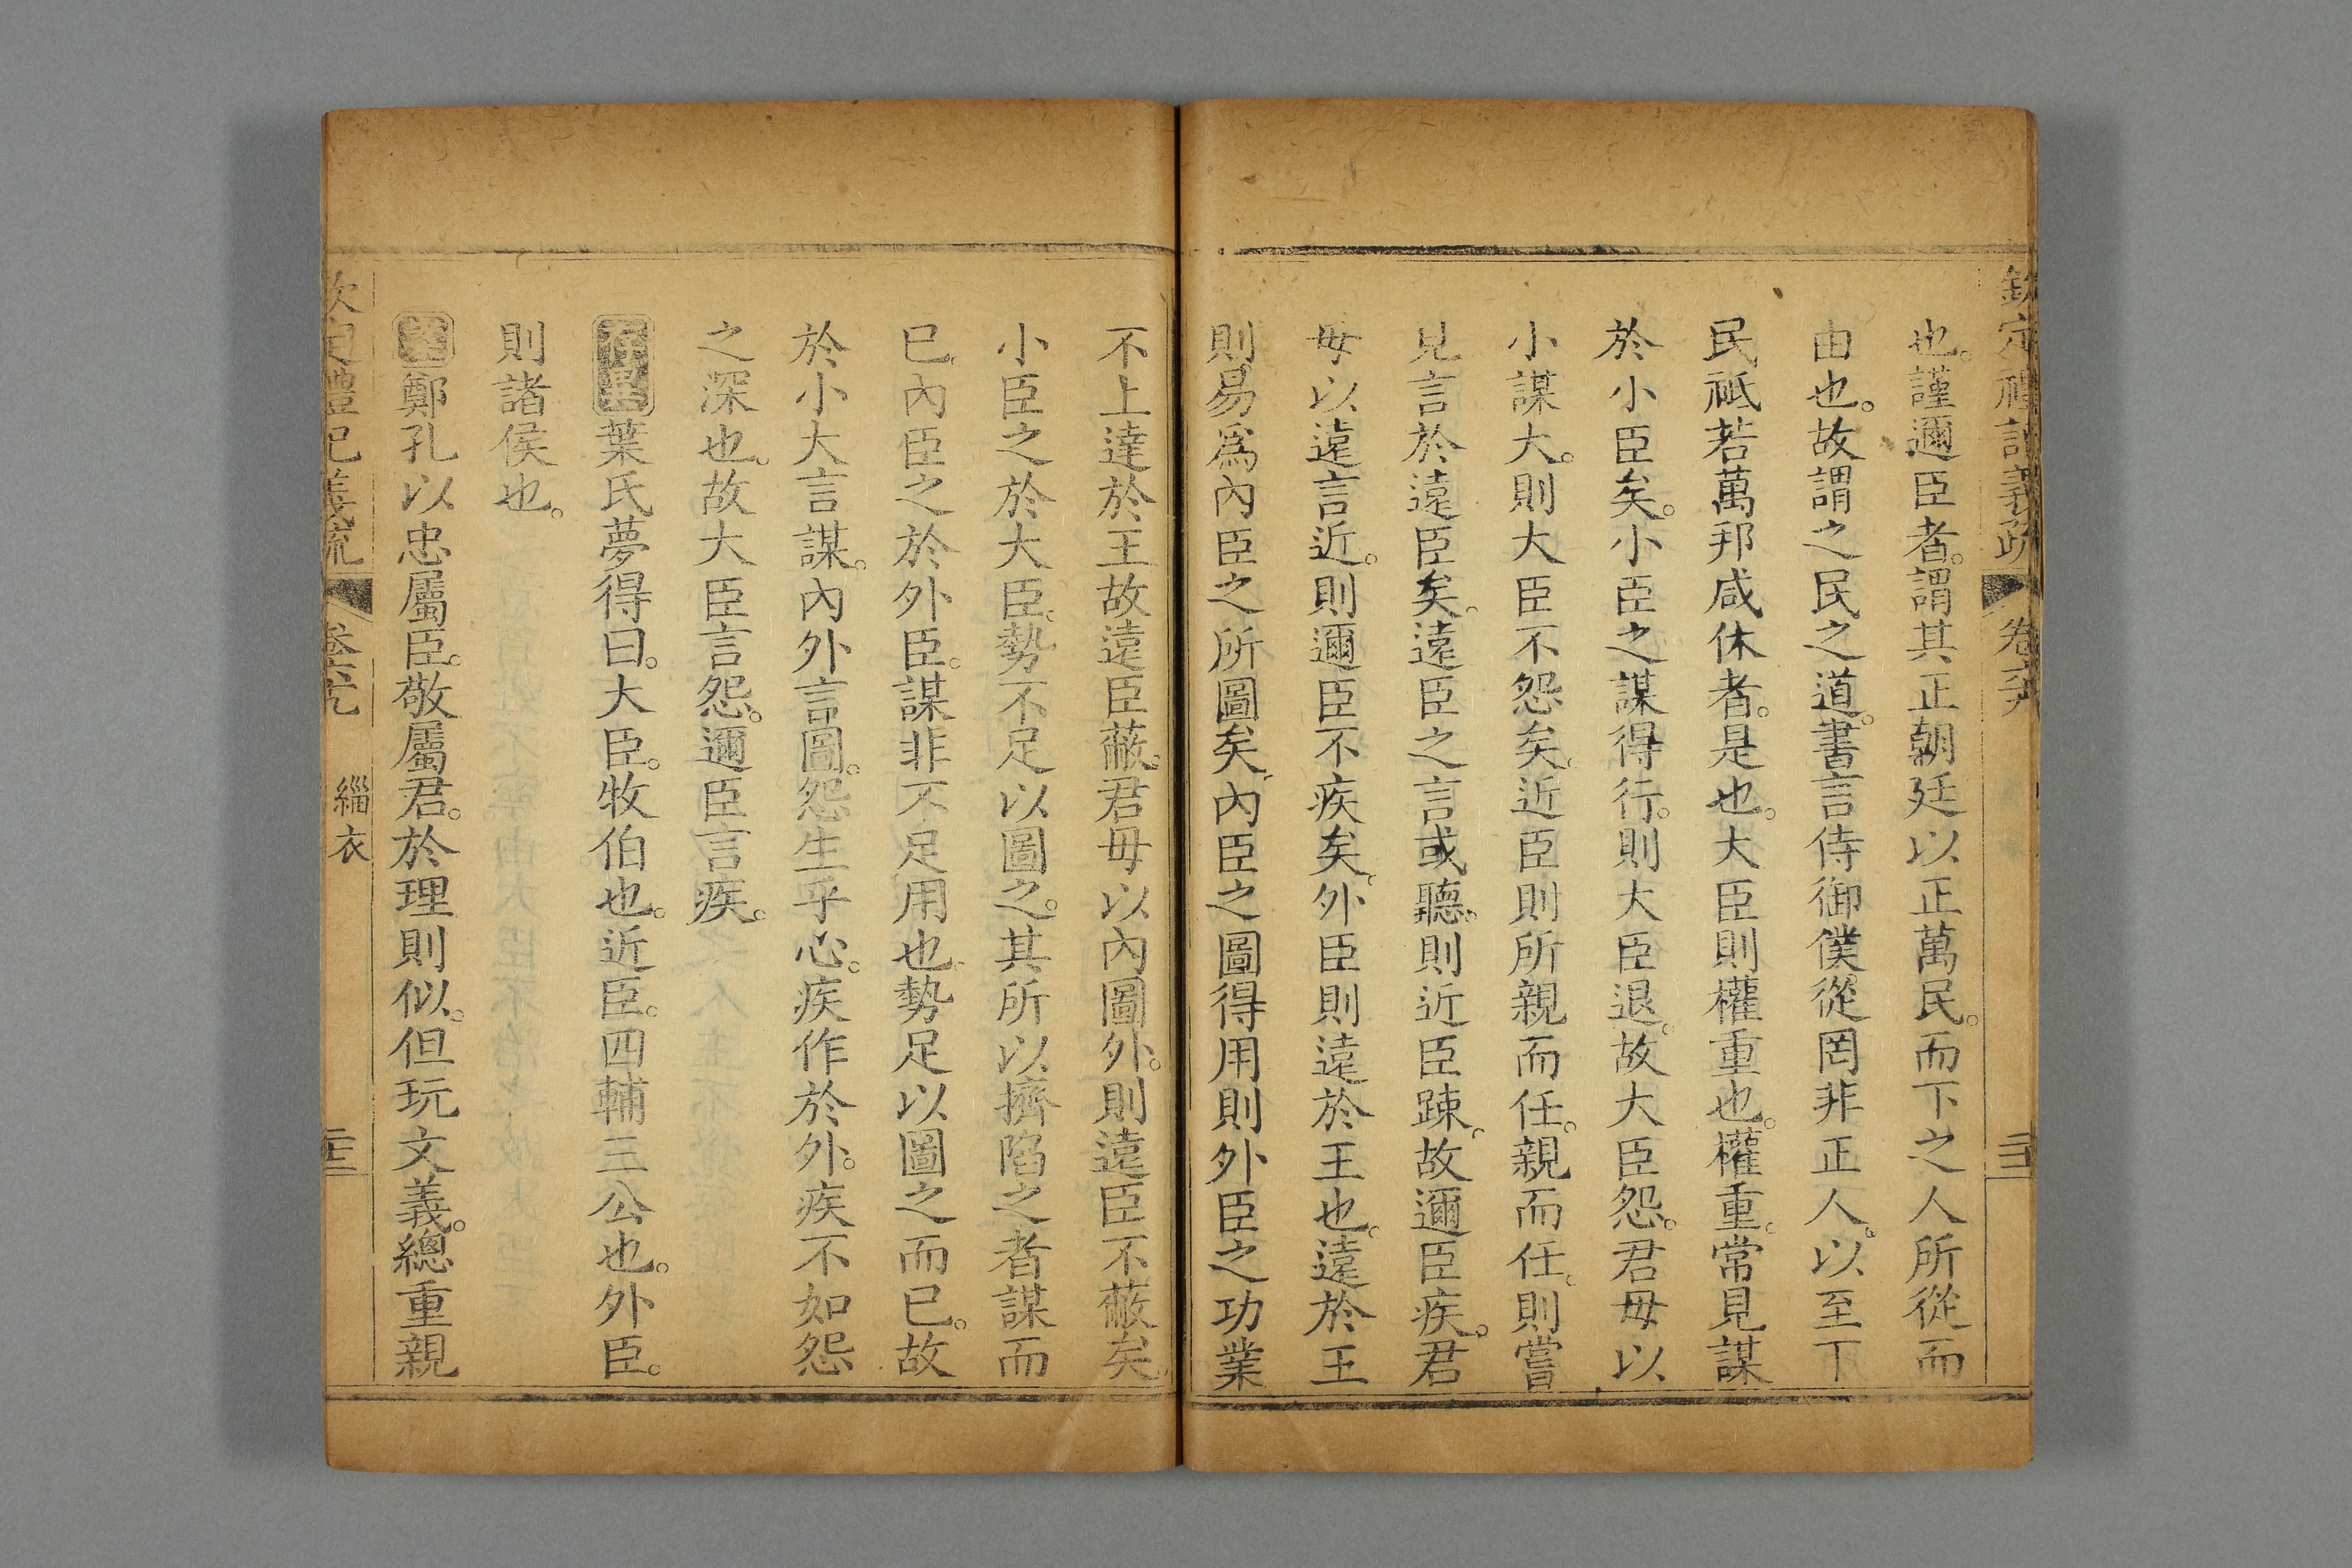 欽定禮記義疏 卷六十九
也。謹邇臣者。謂其正朝廷以正萬民。而下之人所從而
由也。故謂之民之道。書言侍御僕從罔非正人。以至下
民祗若萬邦咸休者。是也。大臣則權重也。權重。常見謀
於小臣矣。小臣之謀得行。則大臣退。故大臣怨。君毋以
小謀大。則大臣不怨矣。近臣則所親而任。親而任。則嘗
見言於遠臣矣。遠臣之言或聽。則近臣踈。故邇臣疾。君
毋以遠言近。則邇臣不疾矣。外臣則遠於王也。遠於王
則易爲內臣之所圖矣。內臣之圖得用則外臣之功業
不上達於王故遠臣蔽。君毋以內圖外。則遠臣不蔽矣。
小臣之於大臣。勢不足以圖之。其所以擠陷之者謀而
已。內臣之於外臣。謀非不足用也。勢足以圖之而已。故
於小大言謀。內外言圖。怨生乎心。疾作於外。疾不如怨
之深也。故大臣言怨。邇臣言疾。
葉氏夢得曰。大臣。牧伯也。近臣。四輔三公也。外臣。
則諸侯也。
鄭孔以忠屬臣。敬屬君。於理則似。但玩文義。總重親
欽定禮記義疏 卷六十九 緇衣